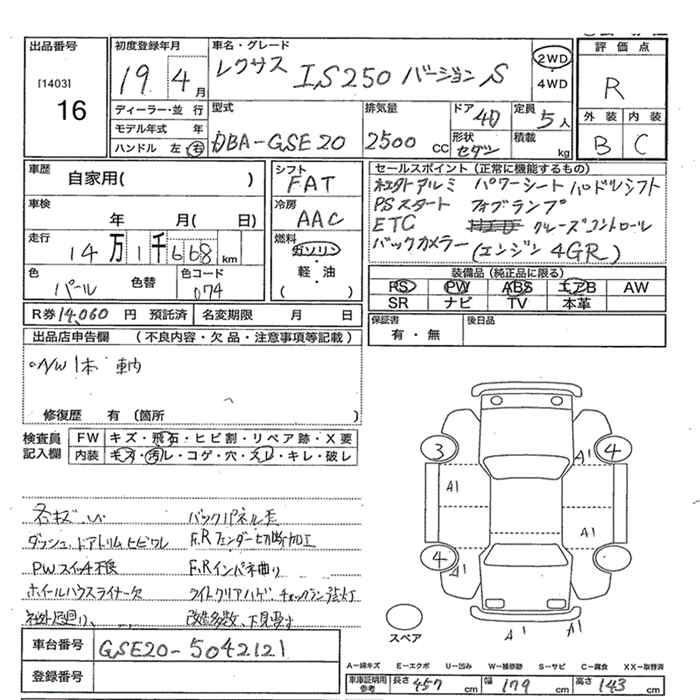 出品番号
[1403]
16
初度登録年月
19年 4月
車名・グレード
レクサス IS250 バージョンS
2WD
・
4WD
評価点
R
外装 内装
B C
ディーラー・並行
モデル年式 年
ハンドル 左・右
型式
DBA-GSE20
排気量
2500 CC
ドア 4D
形状 セダン
定員 5人
積載 kg
車歴
自家用( )
車検
年 月( 日)
走行
14万1千668km
色 パール
色替
色コード 074
シフト
FAT
冷房
AAC
燃料
ガソリン
・
軽・油
( )
セールスポイント(正常に機能するもの)
社外アルミ パワーシート ハンドルシフト
PSスタート フォグランプ
ETC クルーズコントロール
バックカメラー (エンジン 4GR)
装備品(純正品に限る)
PS PW ABS エアB AW
SR ナビ TV 本革
R券 14,060 円 預託済 名変期限 月 日
保証書
有・無
後日品
出品店申告欄 (不良内容・欠品・注意事項等記載)
N/W 1本
修復歴 有(箇所 )
検査員
記入欄
FW キズ・飛石・ヒビ割・リペア跡・X要
内装 キズ・汚レ・コゲ・穴・スレ・キレ・破レ
バックパネル
ダッシュ、ドアトリムヒビワレ F,Rフェンダー切断加工
PWスイッチ不良 F,Rインパネ曲り
ホイールハウスライナー欠 ライトクリアハゲ、チェックランプ点灯
社外足廻り、 改造多数、下見要す
3
4
A1
A1
A1
A1
4
A1
A1
A1
スペア
車台番号 GSE20-5042121
登録番号
A-線キズ E-エクボ U-凹み W-補修跡 S-サビ C-腐食 XX-取替済
車庫証明用参考 長さ 457 cm 幅 179 cm 高さ 143 cm